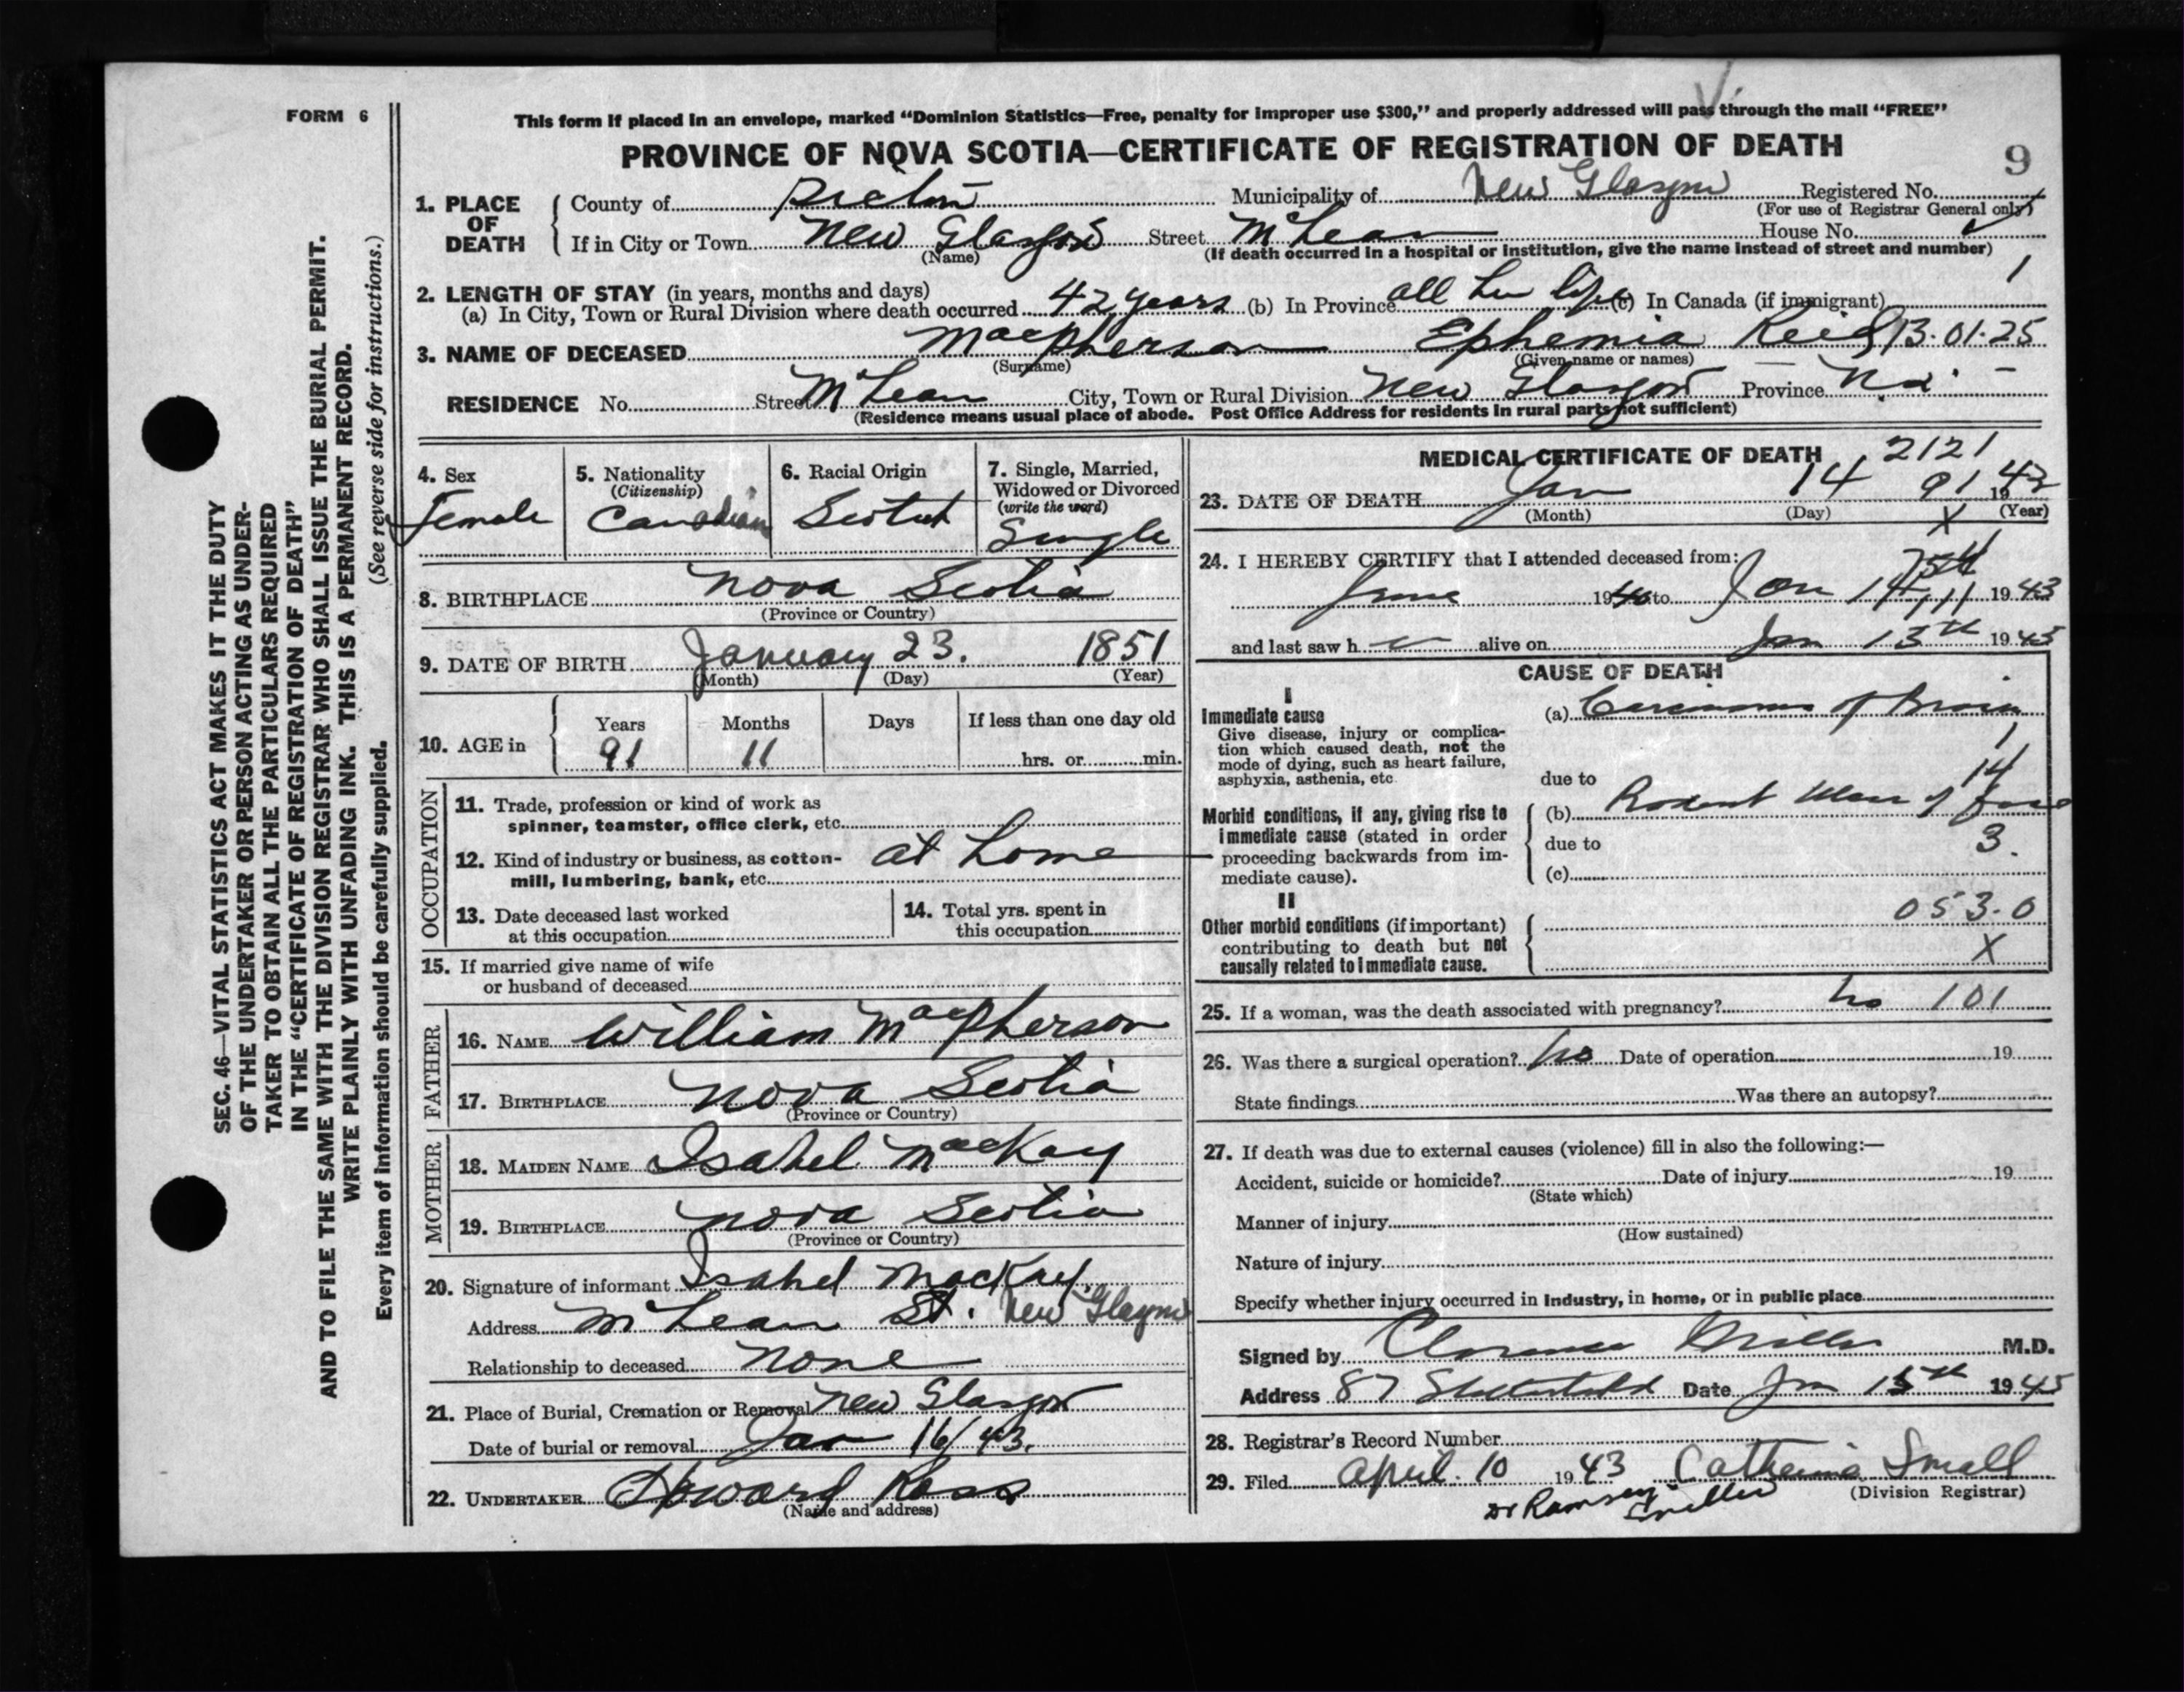 FORM 6
This form if placed in an envelope, marked "Dominion Statistics—Free, penalty for improper use $300," and properly addressed will pass through the mail "FREE"
PROVINCE OF NOVA SCOTIA—CERTIFICATE OF REGISTRATION OF DEATH
9
1. PLACE OF DEATH
County of Pictou Municipality of New Glasgow Registered No.
(For use of Registrar General only)
If in City or Town New Glasgow Street McLean House No.
(Name) (If death occurred in a hospital or institution, give the name instead of street and number)
1
2. LENGTH OF STAY (in years, months and days)
(a) In City, Town or Rural Division where death occurred 42 years (b) In Province all her life (c) In Canada (if immigrant)
3. NAME OF DECEASED MacPherson Ephemia Reid 13-01-25
(Surname) (Given name or names)
RESIDENCE No. Street McLean City, Town or Rural Division New Glasgow Province N.S.
(Residence means usual place of abode. Post Office Address for residents in rural parts not sufficient)
4. Sex
Female
5. Nationality
(Citizenship)
Canadian
6. Racial Origin
Scotch
7. Single, Married,
Widowed or Divorced
(write the word)
Single
8. BIRTHPLACE Nova Scotia
(Province or Country)
9. DATE OF BIRTH January 23. 1851
(Month) (Day) (Year)
10. AGE in
Years Months Days If less than one day old
91 11 hrs. or min.
OCCUPATION
11. Trade, profession or kind of work as
spinner, teamster, office clerk, etc.
12. Kind of industry or business, as cotton- at home
mill, lumbering, bank, etc.
13. Date deceased last worked
at this occupation
14. Total yrs. spent in
this occupation
15. If married give name of wife
or husband of deceased
FATHER
16. NAME William MacPherson
17. BIRTHPLACE Nova Scotia
(Province or Country)
MOTHER
18. MAIDEN NAME Isabel MacKay
19. BIRTHPLACE Nova Scotia
(Province or Country)
20. Signature of informant Isabel MacKay.
Address McLean St. New Glasgow
Relationship to deceased None
21. Place of Burial, Cremation or Removal New Glasgow
Date of burial or removal Jan 16/43.
22. UNDERTAKER Howard Ross
(Name and address)
MEDICAL CERTIFICATE OF DEATH 2121
23. DATE OF DEATH Jan 14 91 19
(Month) (Day) X (Year)
24. I HEREBY CERTIFY that I attended deceased from:
June 1940 to Jan 14 19 43
and last saw h alive on Jan 13th 19 43
CAUSE OF DEATH
I
Immediate cause
Give disease, injury or complica-
tion which caused death, not the
mode of dying, such as heart failure,
asphyxia, asthenia, etc.
(a) Carcinoma of Brain
1
due to 14
Morbid conditions, if any, giving rise to
immediate cause (stated in order
proceeding backwards from im-
mediate cause).
(b) Rodent Ulcer of face
due to 3.
(c)
II
Other morbid conditions (if important)
contributing to death but not
causally related to immediate cause.
053-0
X
25. If a woman, was the death associated with pregnancy? no 101
26. Was there a surgical operation? No Date of operation 19
State findings Was there an autopsy?
27. If death was due to external causes (violence) fill in also the following:—
Accident, suicide or homicide? Date of injury 19
(State which)
Manner of injury
(How sustained)
Nature of injury
Specify whether injury occurred in industry, in home, or in public place
Signed by Clarence Miller M.D.
Address 87 Date Jan 15th 19
28. Registrar's Record Number
29. Filed April 10 1943 Catherine Small
(Division Registrar)
Dr Ramsey Miller
SEC. 46—VITAL STATISTICS ACT MAKES IT THE DUTY
OF THE UNDERTAKER OR PERSON ACTING AS UNDER-
TAKER TO OBTAIN ALL THE PARTICULARS REQUIRED
IN THE "CERTIFICATE OF REGISTRATION OF DEATH"
AND TO FILE THE SAME WITH THE DIVISION REGISTRAR WHO SHALL ISSUE THE BURIAL PERMIT.
WRITE PLAINLY WITH UNFADING INK. THIS IS A PERMANENT RECORD.
Every item of information should be carefully supplied. (See reverse side for instructions.)